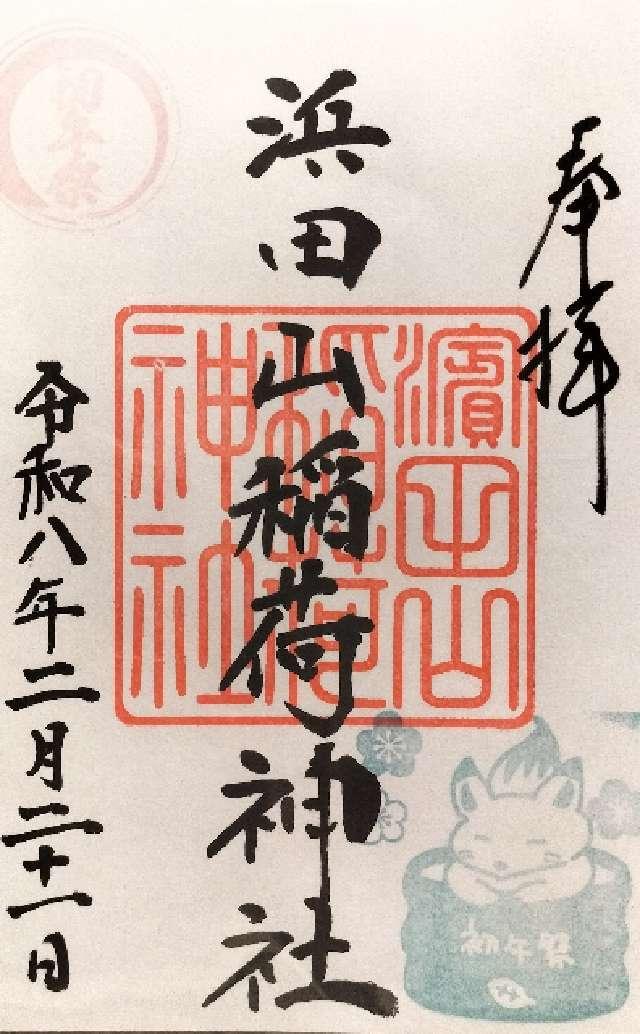 奉拝
濱田山
稲荷
神社
浜田山稲荷神社
初午祭
令和八年二月二十一日
初午祭